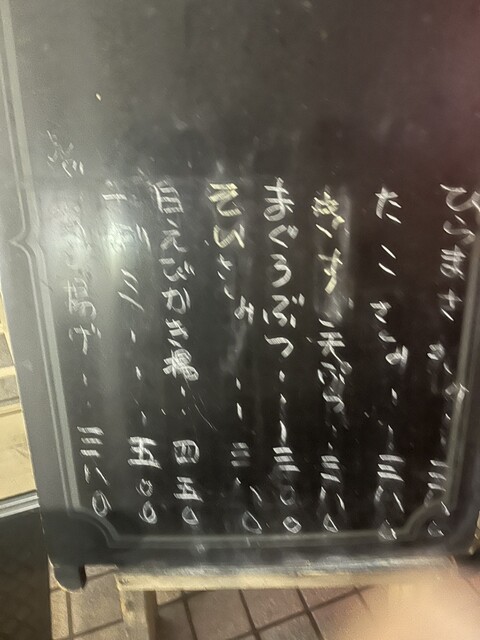 ひらまささしみ・・三八〇
たこさしみ・・三八〇
きす天ぷら・・三八〇
まぐろぶつ・・・三〇〇
えびさしみ・・・三八〇
白えびかき揚・・四五〇
五〇〇
揚げ・・三八〇